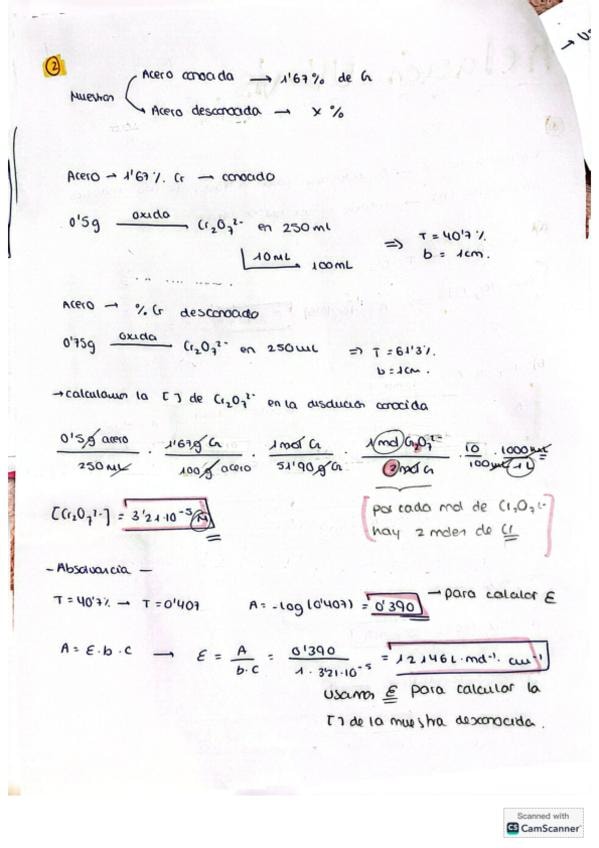 → US
②
Acero conocida → 1'67% de Cr
Muestras
Acero desconocida → x %
Acero → 1'67% Cr → conocido
0'5g oxido → Cr₂O₇²⁻ en 250 ml
10 ML 100ML
⇒ T = 40'7%
b = 1cm.
Acero → % Cr desconocido
0'75g oxida → Cr₂O₇²⁻ en 250 ml ⇒ T = 61'3%
b = 1cm.
→ calculamos la [ ] de Cr₂O₇²⁻ en la disolución conocida
0'5g acero / 250 ML · 1'67g Cr / 100g acero · 1mol Cr / 51'90g Cr · 1mol Cr₂O₇²⁻ / 2mol Cr · 10 / 100 · 1000 mL / 1L =
[Cr₂O₇²⁻] = 3'21·10⁻⁵ M
por cada mol de Cr₂O₇²⁻
hay 2 moles de Cr
- Absorvancia -
T = 40'7% → T = 0'407 A = -log (0'407) = 0'390 → para calcular ε
A = ε·b·c → ε = A / b·c = 0'390 / 1 · 3'21·10⁻⁵ = 12146 L·mol⁻¹·cm⁻¹
usamos ε para calcular la
[ ] de la muestra desconocida.
Scanned with
CS CamScanner